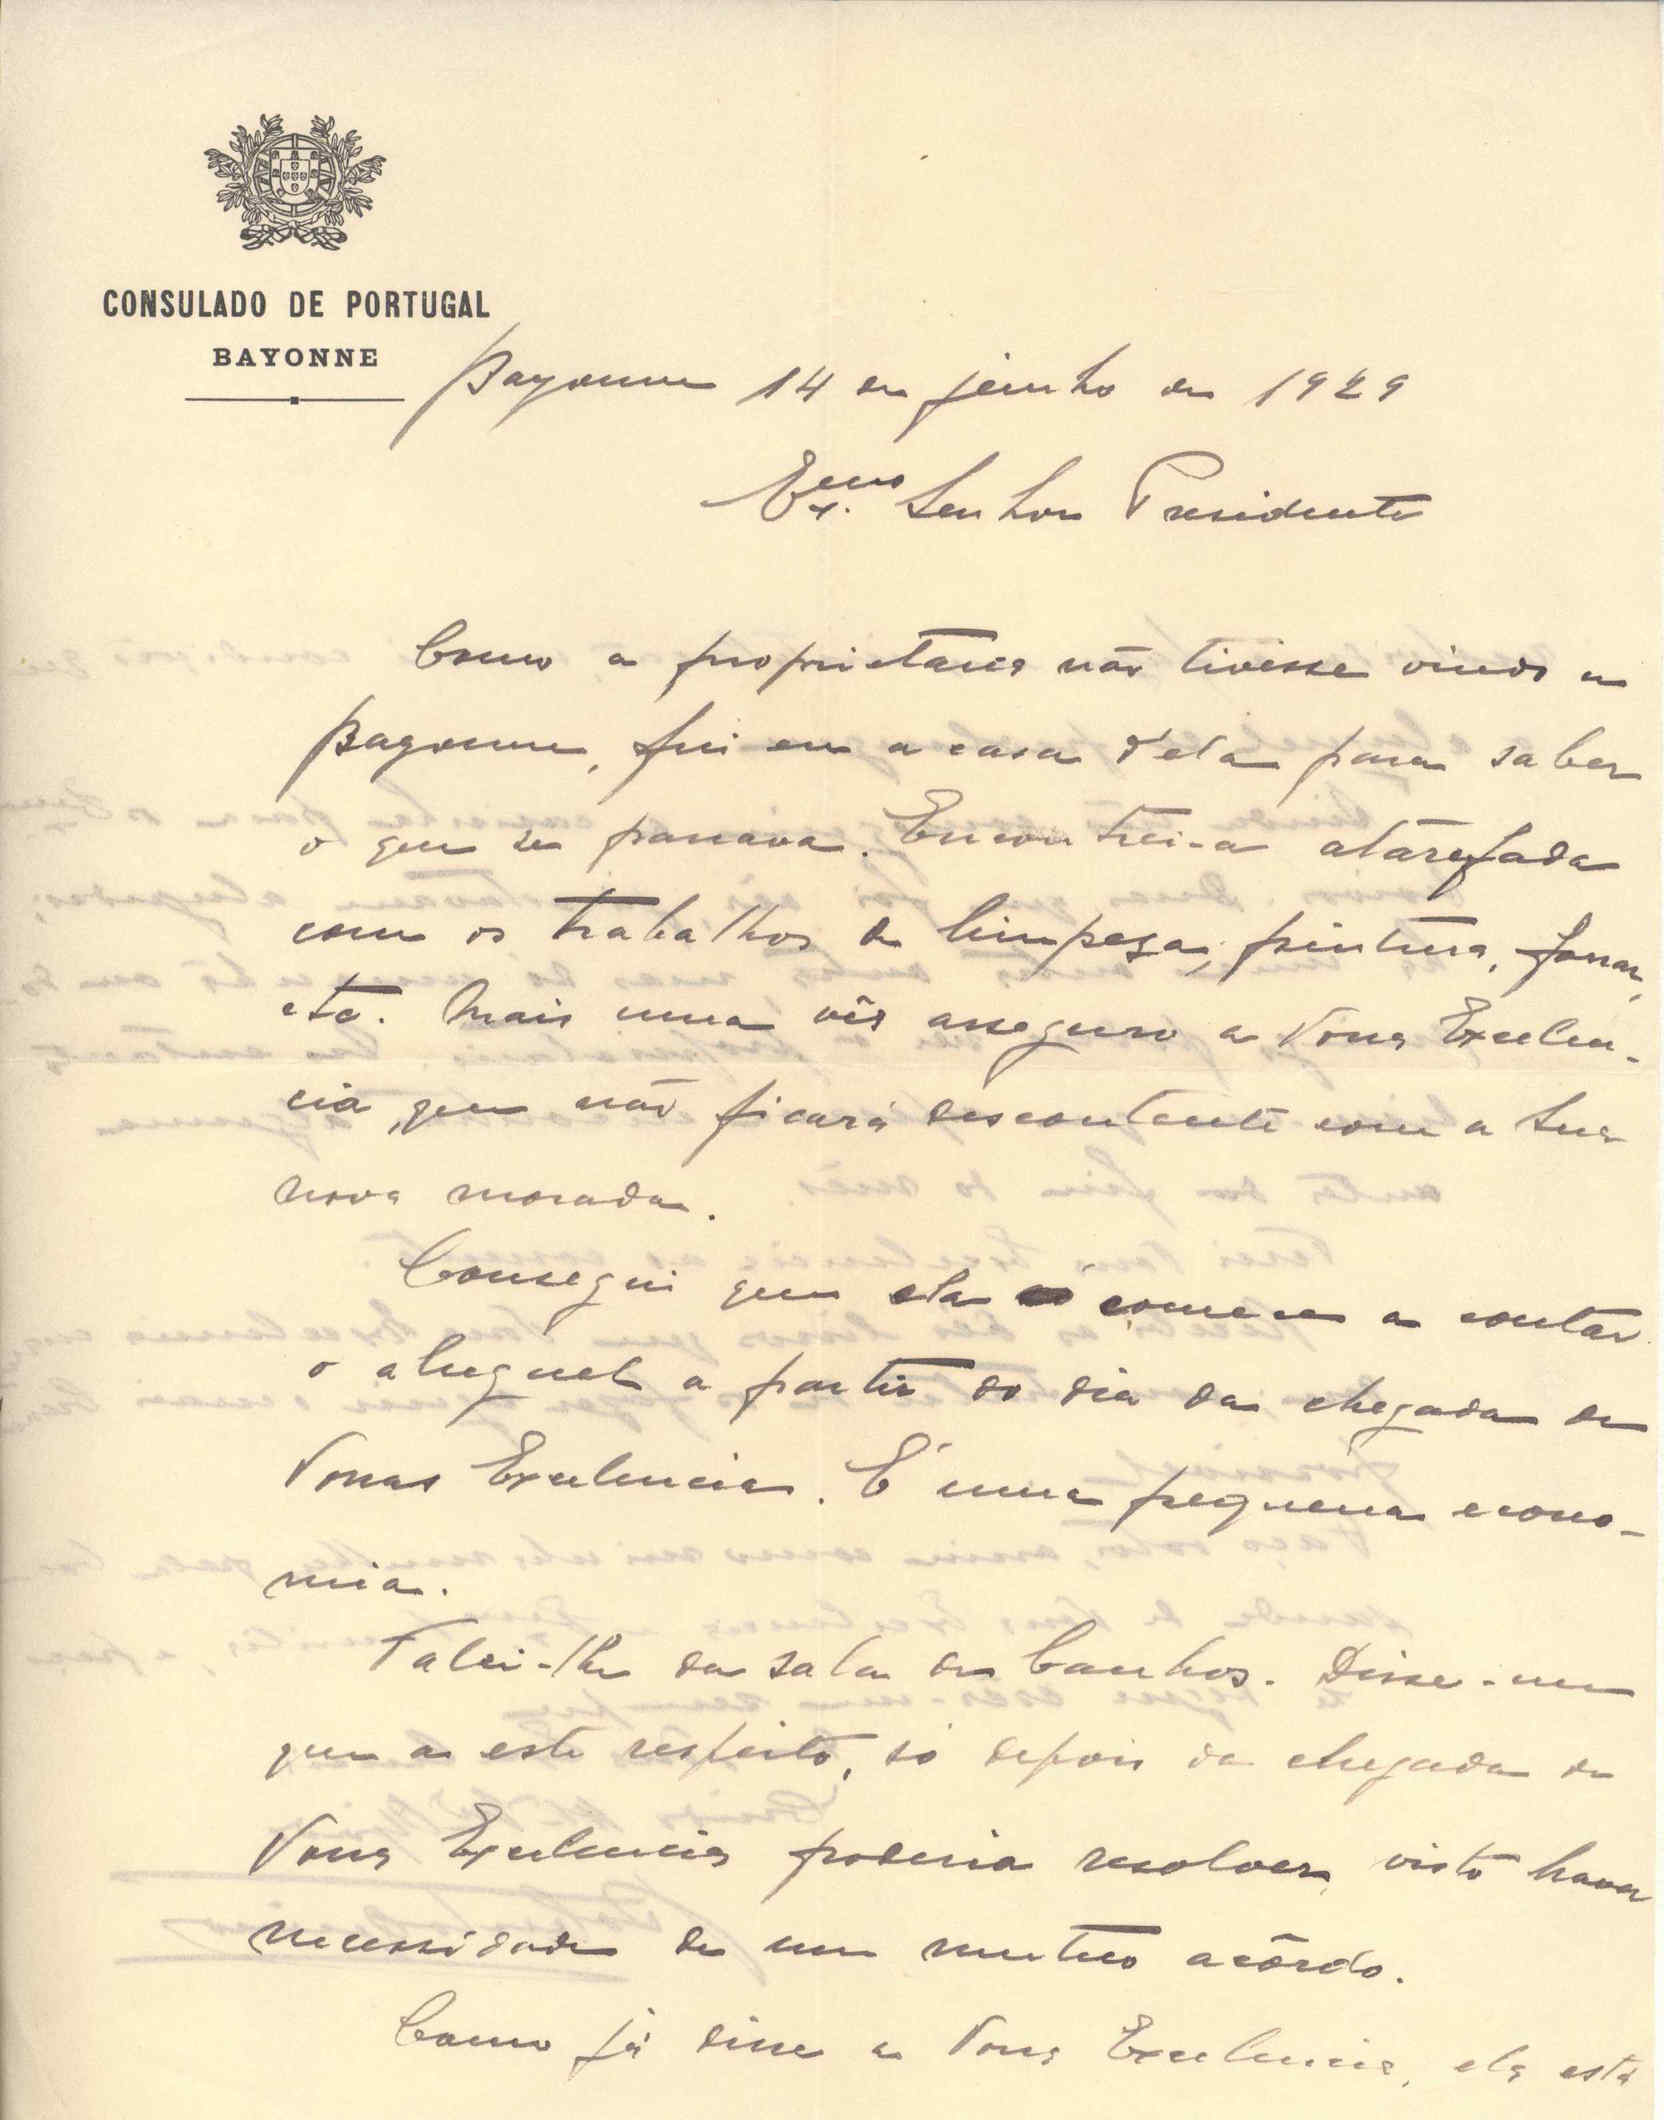 CONSULADO DE PORTUGAL
BAYONNE
Bayonne 14 de junho de 1929
Exmo. Senhor Presidente
Como a proprietaria não tivesse vindo a
Bayonne, fui eu a casa d'ela para saber
o que se passava. Encontrei-a atarefada
com os trabalhos de limpeza, pintura, forrar,
etc. Mais uma vês asseguro a Vossa Excelen-
cia, que não ficará descontente com a sua
nova morada.
Consegui que ela comece a contar
o aluguel a partir do dia da chegada de
Vossas Excelencias. E' uma pequena econo-
mia.
Falei-lhe da sala de banhos. Disse-me
que a este respeito, só depois da chegada de
Vossa Excelencia poderia resolver, visto haver
necessidade de um mutuo acôrdo.
Como já disse a Vossa Excelencia, ela está